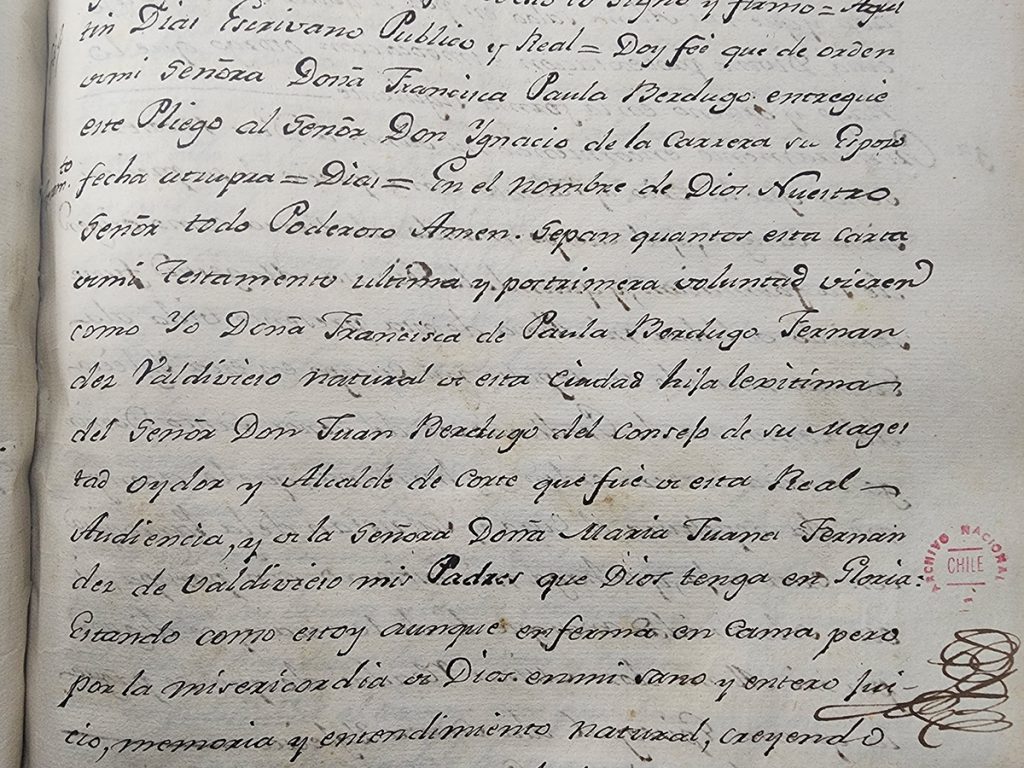 lo signo y firmo = Agus
tin Dias Escrivano Publico y Real = Doy feè que de orden
de mi Señora Doña Francisca Paula Berdugo entregue
este Pliego al Señor Don Ygnacio de la Carrera su Esposo
fecha utsupra = Dias = En el nombre de Dios Nuestro
Señor todo Poderoso Amen. Sepan quantos esta carta
de mi Testamento ultima y postrimera voluntad vieren
como Yo Doña Francisca de Paula Berdugo Fernan
dez Valdivieso natural de esta Ciudad hija lexitima
del Señor Don Juan Berdugo del Consejo de su Mages
tad oydor y Alcalde de Corte que fuè de esta Real
Audiencia, y de la Señora Doña Maria Juana Fernan
dez de Valdivieso mis Padres que Dios tenga en Gloria:
Estando como estoy aunque enferma en Cama, pero
por la misericordia de Dios en mi sano y entero jui-
cio, memoria y entendimiento natural, creyendo
ARCHIVO NACIONAL
CHILE